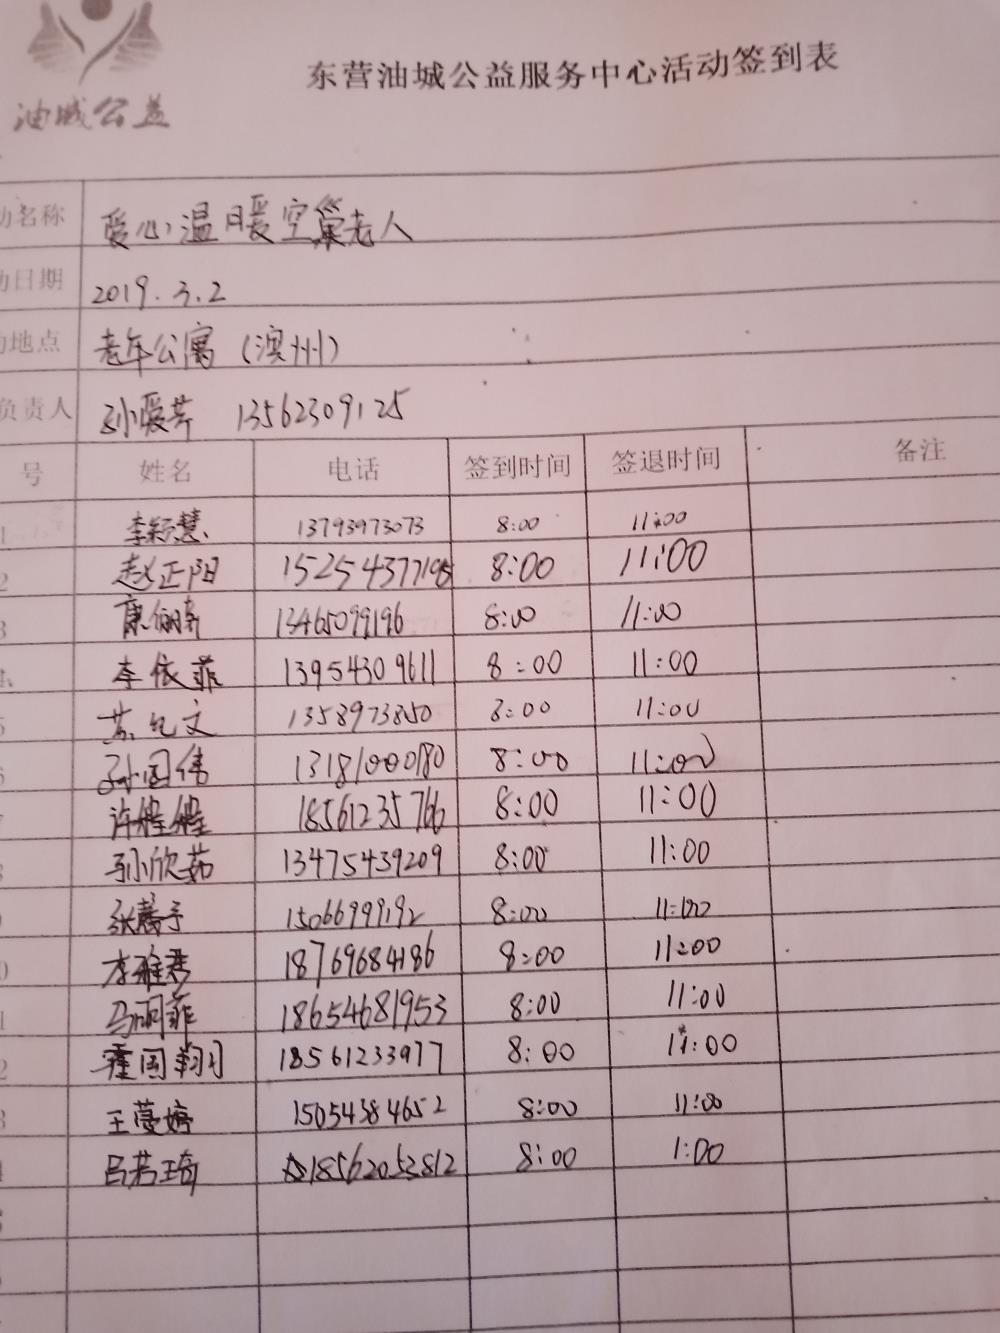 油城公益
东营油城公益服务中心活动签到表
动名称 爱心温暖空巢老人
动日期 2019.3.2
动地点 老年公寓（滨州）
负责人 孙爱芹 13562309125
号 姓名 电话 签到时间 签退时间 备注
1 李颖慧 13793973073 8:00 11:00
2 赵正阳 15254377195 8:00 11:00
3 康 13465099196 8:00 11:00
4 李依菲 13954309611 8:00 11:00
5 苏文 1358973850 8:00 11:00
6 孙国伟 13181000180 8:00 11:00
7 许 18561235766 8:00 11:00
8 孙欣茹 13475439209 8:00 11:00
9 张馨予 15066999192 8:00 11:00
0 李雅君 18769684186 8:00 11:00
1 马丽菲 18654681953 8:00 11:00
2 霍国翔 18561233977 8:00 11:00
3 王蔓婷 15054384652 8:00 11:00
4 吕若琦 18562053812 8:00 1:00